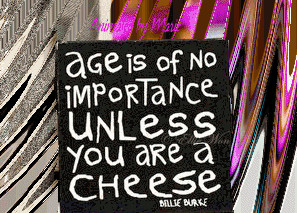 Animated by Marie
AGE IS OF NO
IMPORTANCE
UNLESS
YOU ARE A
CHEESE
BILLIE BURKE